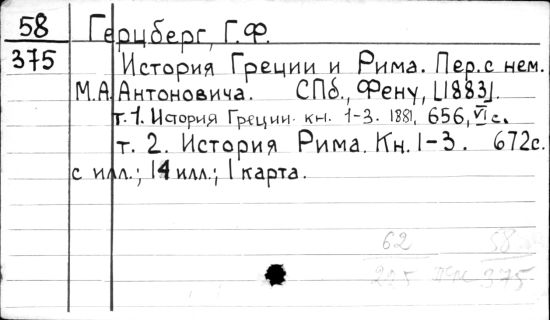 58 Герцберг, Г.Ф.
375 История Греции и Рима. Пер. с нем.
М.А. Антоновича. СПб., Фену, [1883].
т. 1. История Греции. кн. 1-3. 1881. 656, VI с.
т. 2. История Рима. Кн. 1-3. 672с.
с илл.; 14 илл.; 1 карта.
62 58
375